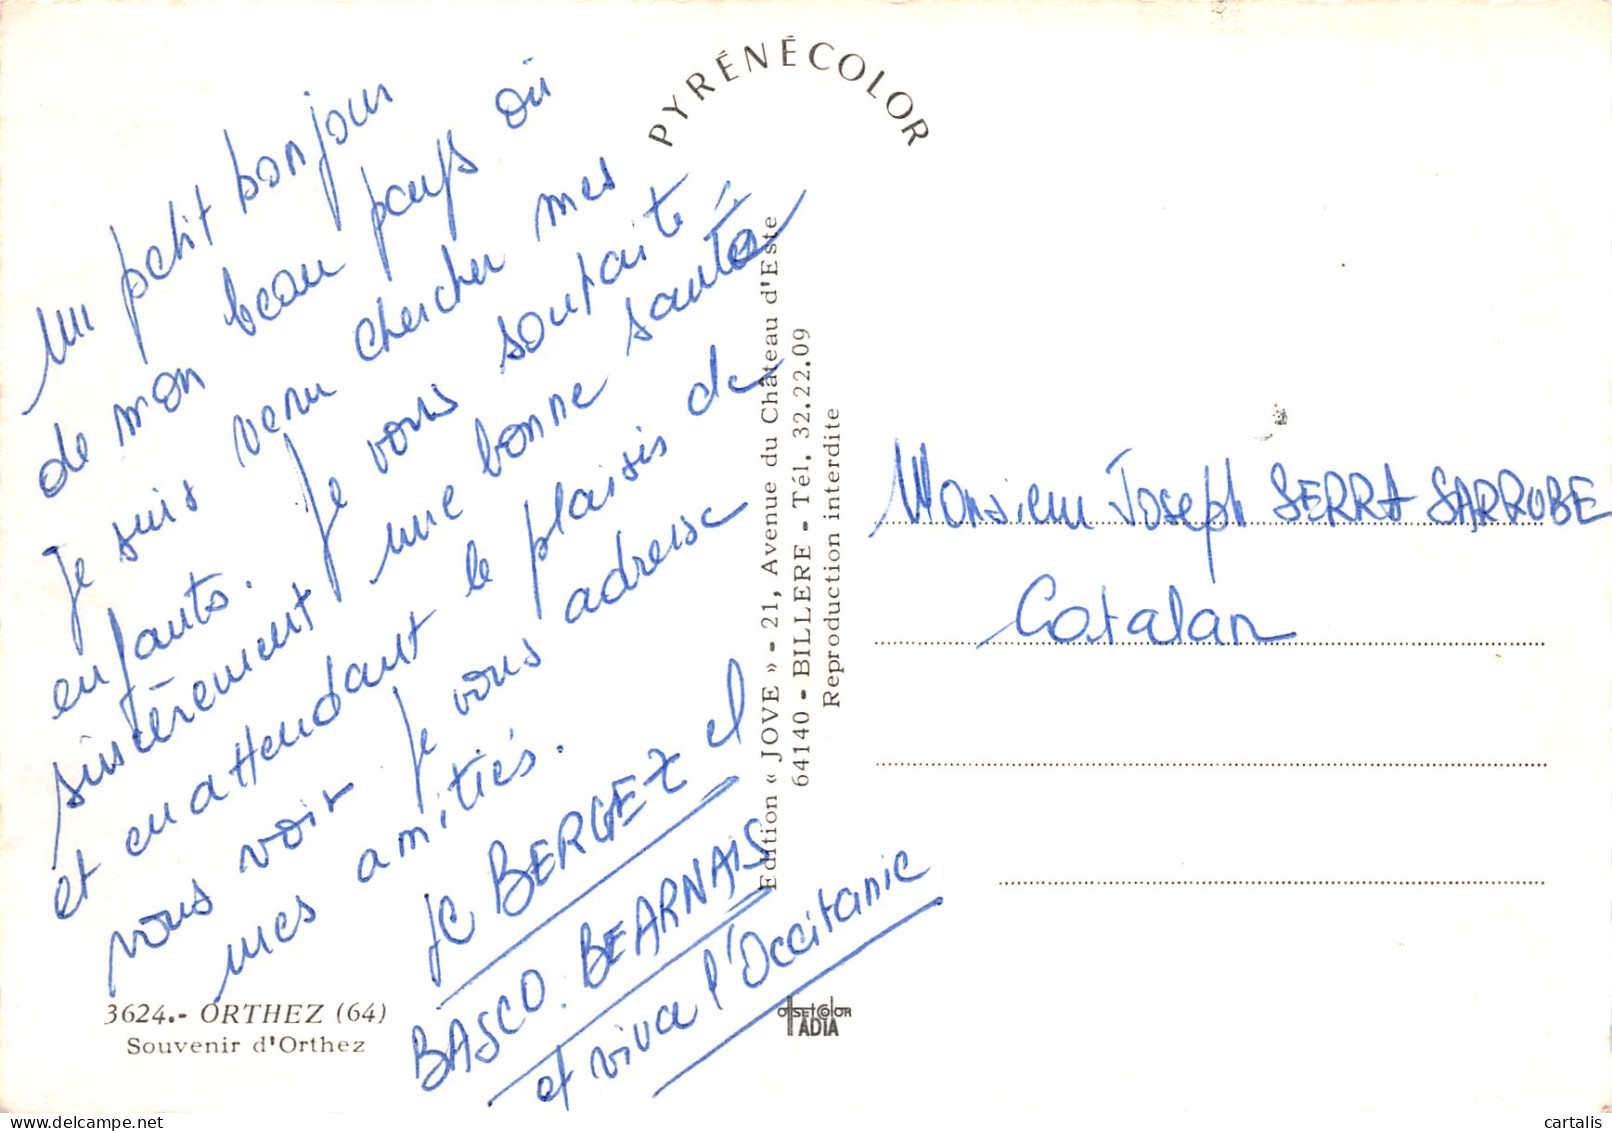 PYRÉNÉCOLOR
Un petit bonjour
de mon beau pays où
je suis venu chercher mes
enfants. Je vous souhaite
sincèrement une bonne santé
et en attendant le plaisir de
vous voir je vous adresse
mes amitiés.
JC BERGEZ el
BASCO-BEARNAIS
et viva l'Occitanie
3624.- ORTHEZ (64)
Souvenir d'Orthez
Edition « JOVE » - 21, Avenue du Château d'Este
64140 - BILLERE - Tél. 32.22.09
Reproduction interdite
offsetcolor
ADIA
Monsieur Joseph SERRA SARROBE
Catalan
cartalis